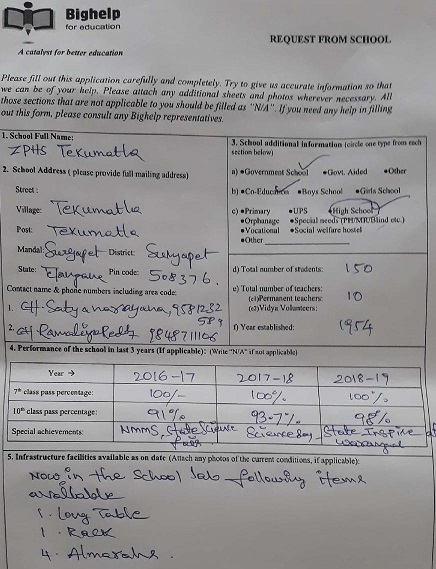 Bighelp
for education
A catalyst for better education
REQUEST FROM SCHOOL
Please fill out this application carefully and completely. Try to give us accurate information so that
we can be of your help. Please attach any additional sheets and photos wherever necessary. All
those sections that are not applicable to you should be filled as "N/A". If you need any help in filling
out this form, please consult any Bighelp representatives.
1. School Full Name:
ZPHS Tekumatla
2. School Address ( please provide full mailing address)
Street :
Village: Tekumatla
Post: Tekumatla
Mandal: Suryapet District: Suryapet
State: Pin code: 508376.
Contact name & phone numbers including area code:
1. CH-Satyanarayana, 9581232
589
2. 9848711106
3. School additional Information (circle one type from each
section below)
a) •Government School •Govt. Aided •Other
b) •Co-Education •Boys School •Girls School
c) •Primary •UPS •High School
•Orphanage •Special needs (PH/MR/Blind etc.)
•Vocational •Social welfare hostel
•Other
d) Total number of students: 150
e) Total number of teachers:
(c1)Permanent teachers: 10
(c2)Vidya Volunteers:
f) Year established: 1954
4. Performance of the school in last 3 years (If applicable): (Write "N/A" if not applicable)
Year → 2016-17 2017-18 2018-19
7th class pass percentage: 100/- 100% 100%
10th class pass percentage: 91% 93.7% 98%
Special achievements: NMMS, State Science Science day State Inspire at
fair Warangal
5. Infrastructure facilities available as on date (Attach any photos of the current conditions, if applicable):
Now in the School lab following items
available
1. Long Table
1. Rack
4. Almarahs.